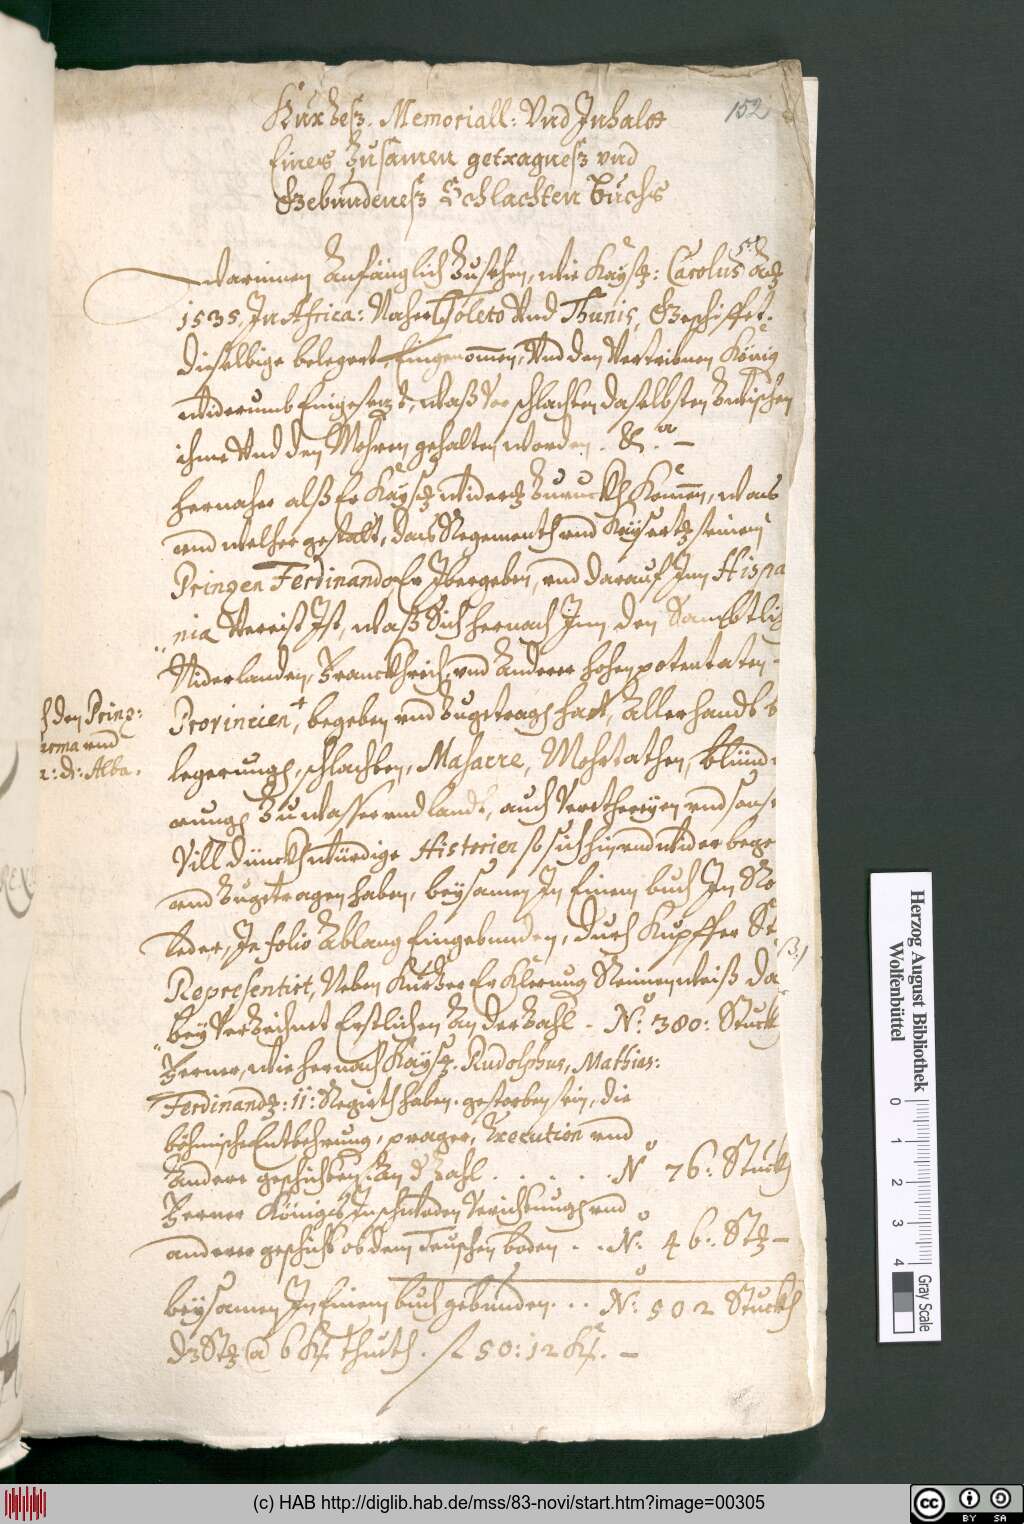 152
Kurzes. Memoriall: Vnd Inhalt
Eines Zusamen getragnes vnd
Gebundenes Schlachten Buchs
warinnen Anfänglich Zusehen, wie Kaÿs: Carolus 5: A°
1535. In Africa: Naher Tholeto Vnd Thunis, Geschiffet.
Dieselbige belegert, Eingenomen, Vnd den Vertribnen König
widerumb Eingesezt, waß vor schlachten daselbsten Zwischen
ihme Vnd den Mohren gehalten worden. &.a —
hernaher alß Er Kaÿs widerz Zuruckh Komen, was
vnd welher gestalt, das Regementh vnd Kaÿsert seinem
Prinzen Ferdinando Er Ibergeben, vnd darauf Inn Hispa
nia Vereist Ist, waß Sich hernach Inn den Sambtli
Niderlanden, Franckhreich, vnd Anderer hohen potentaten -
Provincien + begeben vnd Zugetragen hatt, Allerhandt b
legerungen, schlachten, Masacre, Mohrtathen, blünd-
rungen Zu Wasser vnd landt, auch Verethereÿen vnd sons
Vill dünckhwürdige Historien so sich hin vnd wider bege
vnd Zugetragen haben, beÿsamen In Einem buch In Ro
leder, In folio Ablang Eingebunden, durch Kupffer St
Representirt, Neben Kurzer Er Klerung Reimenweiß da
beÿ Verzeichnet Erstlichen An der Zahl - N° 380: Stuckh
Ferner, wie hernach Kaÿs. Rudolphus, Mathias:
Ferdinand: II: Regirth haben. gestorben sein, die
böhmische Entbehrung, prager, Execution vnd
Andere geschichten. An d Zahl . . . . . N° 76: Stuckh
Ferner Königs In schweden Verichtungen vnd
anderer geschicht ob dem Teuschen boden . . N° 46: St —
beÿsamen In Einem buch gebunden . . . N° 502 Stuckh
Dz St @ 6 Kr thueth . fl 50:12 Kr. —
h den Prinz:
arma vnd
a: d: Alba.
Herzog August Bibliothek
Wolfenbüttel
0 1 2 3 4
Gray Scale
(c) HAB http://diglib.hab.de/mss/83-novi/start.htm?image=00305
cc BY SA